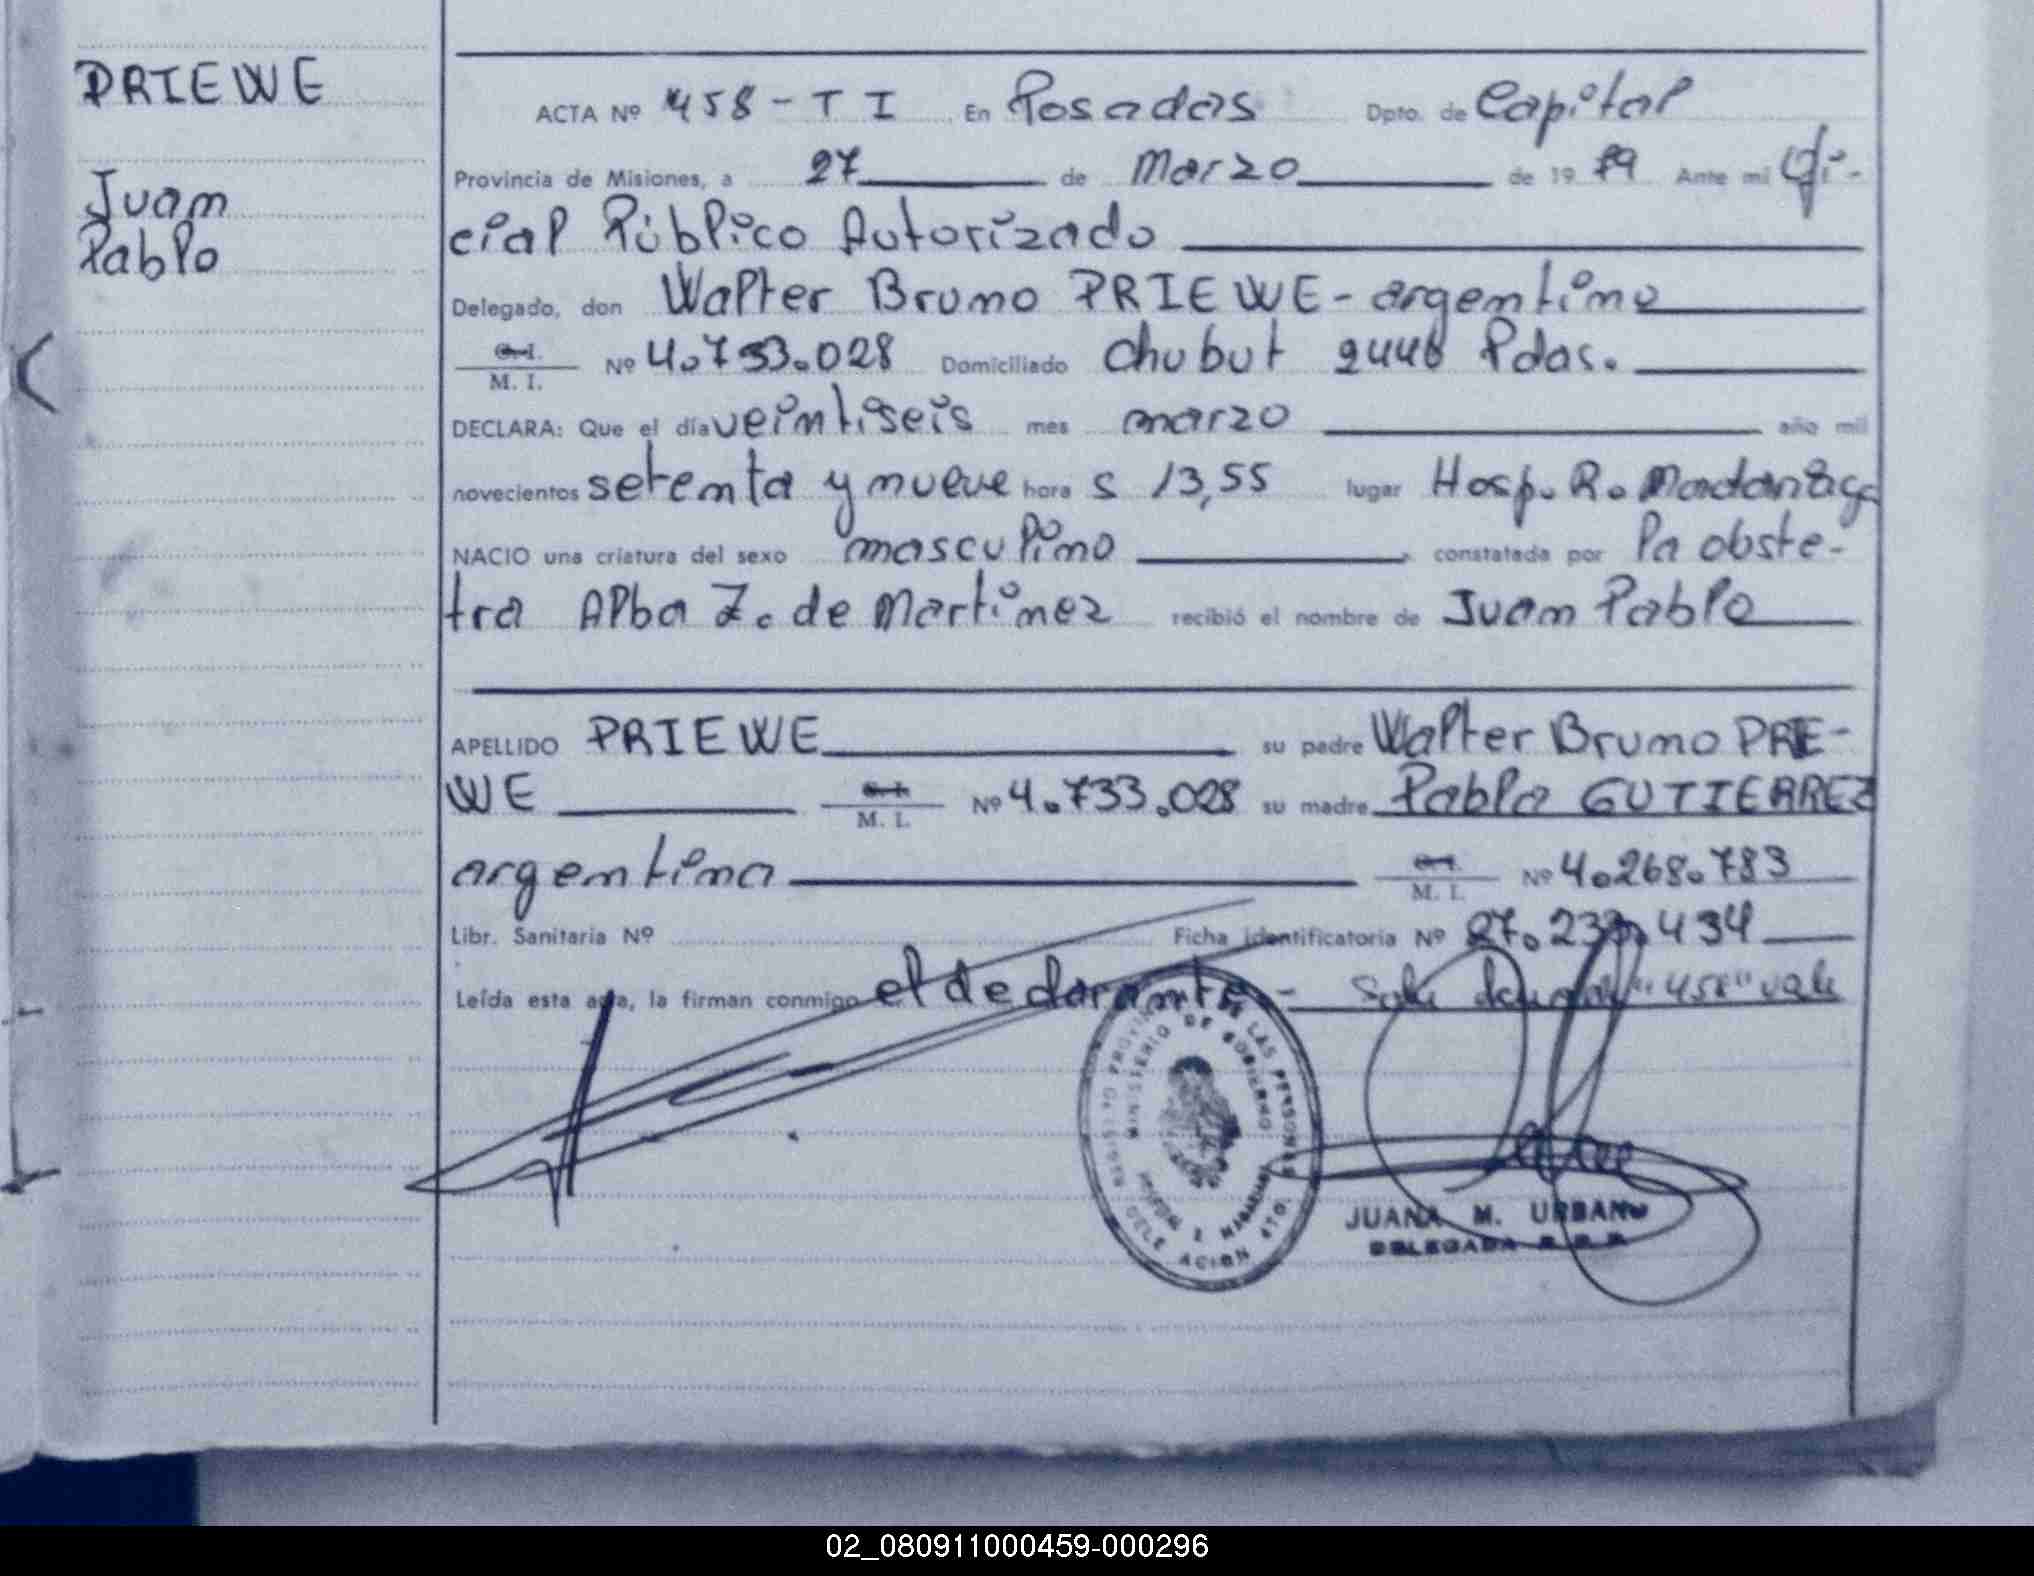 PRIEWE
Juan
Pablo
ACTA Nº 458 - T I En Posadas Dpto. de Capital
Provincia de Misiones, a 27 de Marzo de 1979 Ante mi Ofi-
cial Público Autorizado
Delegado, don Walter Bruno PRIEWE - argentino
C. I. M. I. Nº 4.733.028 Domiciliado Chubut 2446 Pdas.
DECLARA: Que el día veintiseis mes marzo año mil
novecientos setenta y nueve hora s 13,55 lugar Hosp. R. Madariaga
NACIO una criatura del sexo masculino constatada por la obste-
tra Alba Z. de Martinez recibió el nombre de Juan Pablo
APELLIDO PRIEWE su padre Walter Bruno PRIE-
WE C. I. M. I. Nº 4.733.028 su madre Pabla GUTIERREZ
argentina C. I. M. I. Nº 4.268.783
Libr. Sanitaria Nº Ficha identificatoria Nº 27.233.434
Leída esta acta, la firman conmigo el declarante - "458" vale
REGISTRO PROVINCIAL DE LAS PERSONAS
MINISTERIO DE GOBIERNO
DELEGACION
JUANA M. URBANO
DELEGADA R. P. P.
02_080911000459-000296